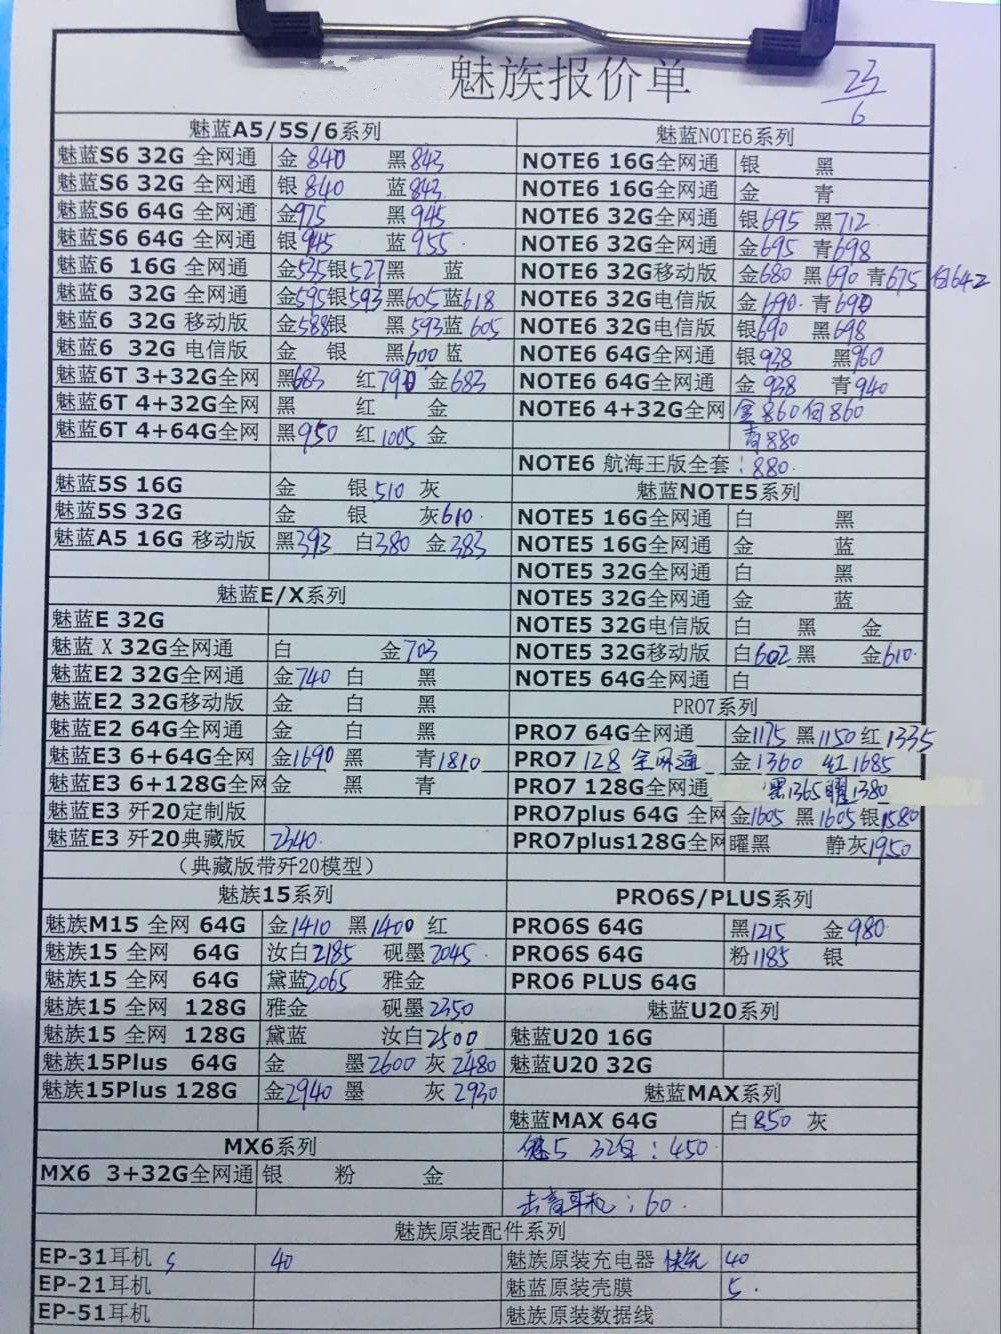 魅族报价单
23/6
魅蓝A5/5S/6系列
魅蓝S6 32G 全网通 金 840 黑 843
魅蓝S6 32G 全网通 银 840 蓝 843
魅蓝S6 64G 全网通 金 975 黑 945
魅蓝S6 64G 全网通 银 945 蓝 955
魅蓝6 16G 全网通 金 525 银 527 黑 蓝
魅蓝6 32G 全网通 金 595 银 593 黑 605 蓝 618
魅蓝6 32G 移动版 金 588 银 黑 593 蓝 605
魅蓝6 32G 电信版 金 银 黑 600 蓝
魅蓝6T 3+32G全网 黑 683 红 金 683
魅蓝6T 4+32G全网 黑 红 金
魅蓝6T 4+64G全网 黑 950 红 1005 金
魅蓝5S 16G 金 银 510 灰
魅蓝5S 32G 金 银 灰 610
魅蓝A5 16G 移动版 黑 393 白 380 金 383
魅蓝E/X系列
魅蓝E 32G
魅蓝 X 32G全网通 白 金 703
魅蓝E2 32G全网通 金 740 白 黑
魅蓝E2 32G移动版 金 白 黑
魅蓝E2 64G全网通 金 白 黑
魅蓝E3 6+64G全网 金 1690 黑 青 1810
魅蓝E3 6+128G全网 金 黑 青
魅蓝E3 歼20定制版
魅蓝E3 歼20典藏版 2340
（典藏版带歼20模型）
魅族15系列
魅族M15 全网 64G 金 1410 黑 1400 红
魅族15 全网 64G 汝白 2185 砚墨 2045
魅族15 全网 64G 黛蓝 2065 雅金
魅族15 全网 128G 雅金 砚墨 2350
魅族15 全网 128G 黛蓝 汝白 2500
魅族15Plus 64G 金 墨 2600 灰 2480
魅族15Plus 128G 金 2940 墨 灰 2930
MX6系列
MX6 3+32G全网通 银 粉 金
魅蓝NOTE6系列
NOTE6 16G全网通 银 黑
NOTE6 16G全网通 金 青
NOTE6 32G全网通 银 695 黑 712
NOTE6 32G全网通 金 695 青 698
NOTE6 32G移动版 金 680 黑 690 青 675 白 642
NOTE6 32G电信版 金 690 青 690
NOTE6 32G电信版 银 690 黑 698
NOTE6 64G全网通 银 938 黑 960
NOTE6 64G全网通 金 938 青 940
NOTE6 4+32G全网 金 860 白 860
青 880
NOTE6 航海王版全套：880
魅蓝NOTE5系列
NOTE5 16G全网通 白 黑
NOTE5 16G全网通 金 蓝
NOTE5 32G全网通 白 黑
NOTE5 32G全网通 金 蓝
NOTE5 32G电信版 白 黑 金
NOTE5 32G移动版 白 602 黑 金 610
NOTE5 64G全网通 白
PRO7系列
PRO7 64G全网通 金 1175 黑 1150 红 1335
PRO7 128 全网通 金 1360 红 1685
PRO7 128G全网通 黑 1365 曜 1380
PRO7plus 64G 全网 金 1605 黑 1605 银 1580
PRO7plus128G全网 曜黑 静灰 1950
PRO6S/PLUS系列
PRO6S 64G 黑 1215 金 980
PRO6S 64G 粉 1185 银
PRO6 PLUS 64G
魅蓝U20系列
魅蓝U20 16G
魅蓝U20 32G
魅蓝MAX系列
魅蓝MAX 64G 白 850 灰
魅5 32 : 450
耳机：60
魅族原装配件系列
EP-31耳机 40
EP-21耳机
EP-51耳机
魅族原装充电器 快充 40
魅蓝原装壳膜 5
魅族原装数据线